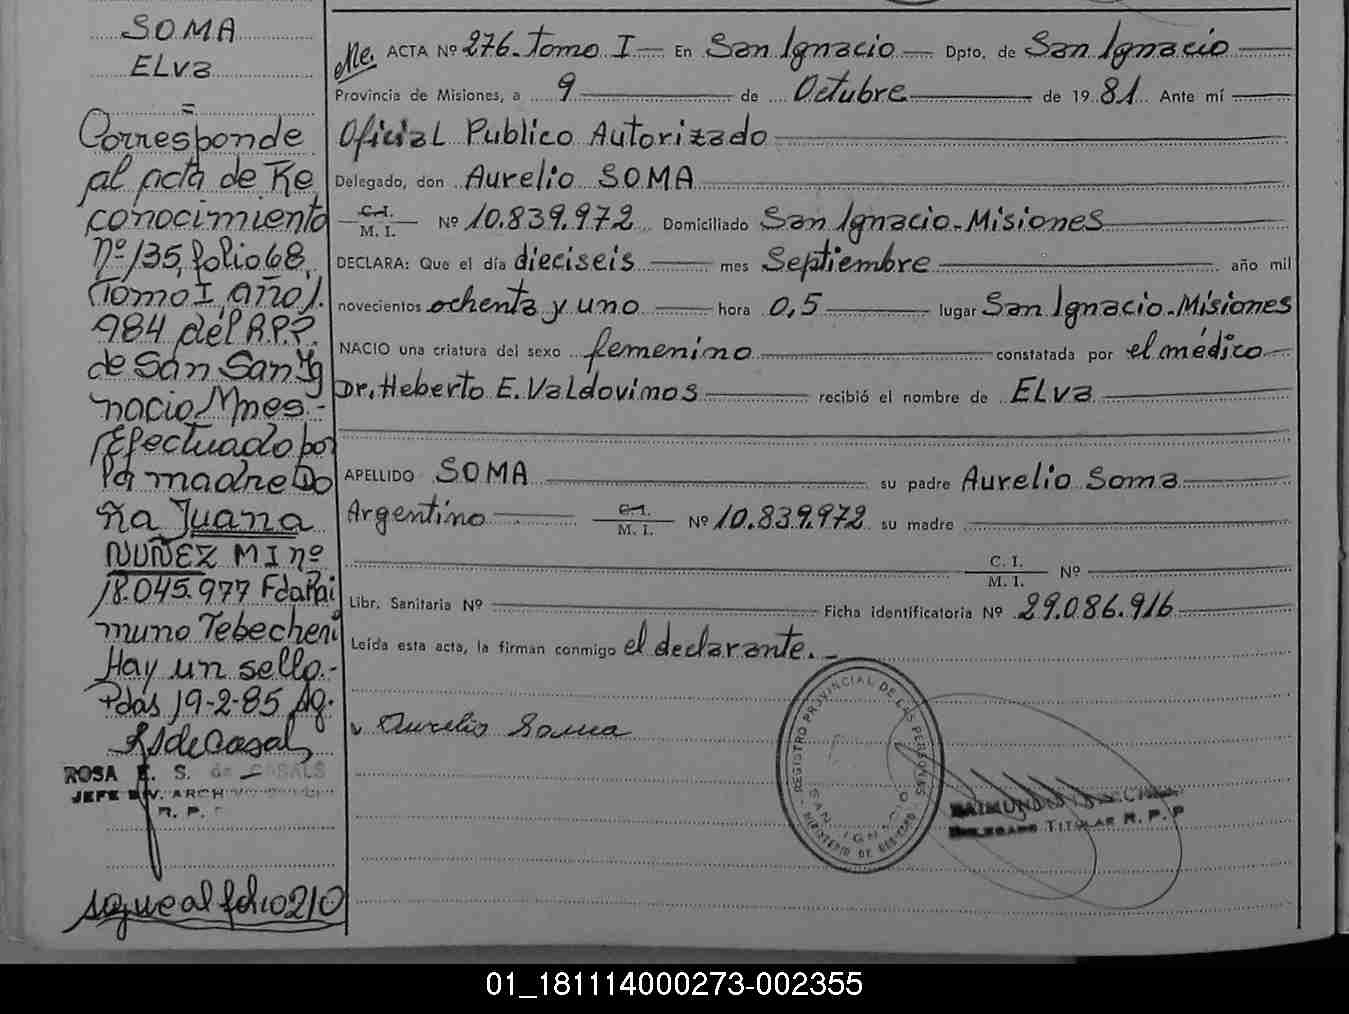 SOMA
ELVA
Corresponde
al acta de Re
conocimiento
Nº 135, folio 68,
Tomo I, año 1.
984 del R.P.P.
de San San Ig
nacio Mnes.-
Efectuado por
la madre Do
ña Juana
NUÑEZ M I nº
18.045.977 Fda Rai
muno Tebecheri
Hay un sello.-
Pdas 19-2-85 Ag.
RSdeCasals
ROSA E. S. de CASALS
JEFE DIV. ARCHIVO
R. P.
sigue al folio 210
Ne. ACTA Nº 276. Tomo I — En San Ignacio — Dpto. de San Ignacio
Provincia de Misiones, a 9 de Octubre de 1981. Ante mí
Oficial Publico Autorizado
Delegado, don Aurelio SOMA
C.I.
M. I. Nº 10.839.972 Domiciliado San Ignacio-Misiones
DECLARA: Que el día dieciseis mes Septiembre año mil
novecientos ochenta y uno hora 0,5 lugar San Ignacio-Misiones
NACIO una criatura del sexo femenino constatada por el médico
Dr. Heberto E. Valdovinos recibió el nombre de ELVA
APELLIDO SOMA su padre Aurelio Soma
Argentino C.I. M. I. Nº 10.839.972 su madre
C. I.
M. I. Nº
Libr. Sanitaria Nº Ficha identificatoria Nº 29.086.916
Leída esta acta, la firman conmigo el declarante.-
Aurelio Soma
REGISTRO PROVINCIAL DE LAS PERSONAS
SAN IGNACIO
MINISTERIO DE GOBIERNO
RAIMUNDO
DELEGADO TITULAR R. P. P
01_181114000273-002355